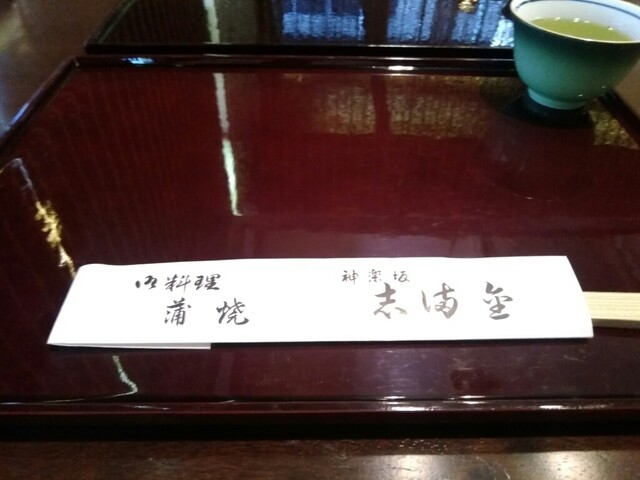 御料理
蒲焼
神楽坂
志満金